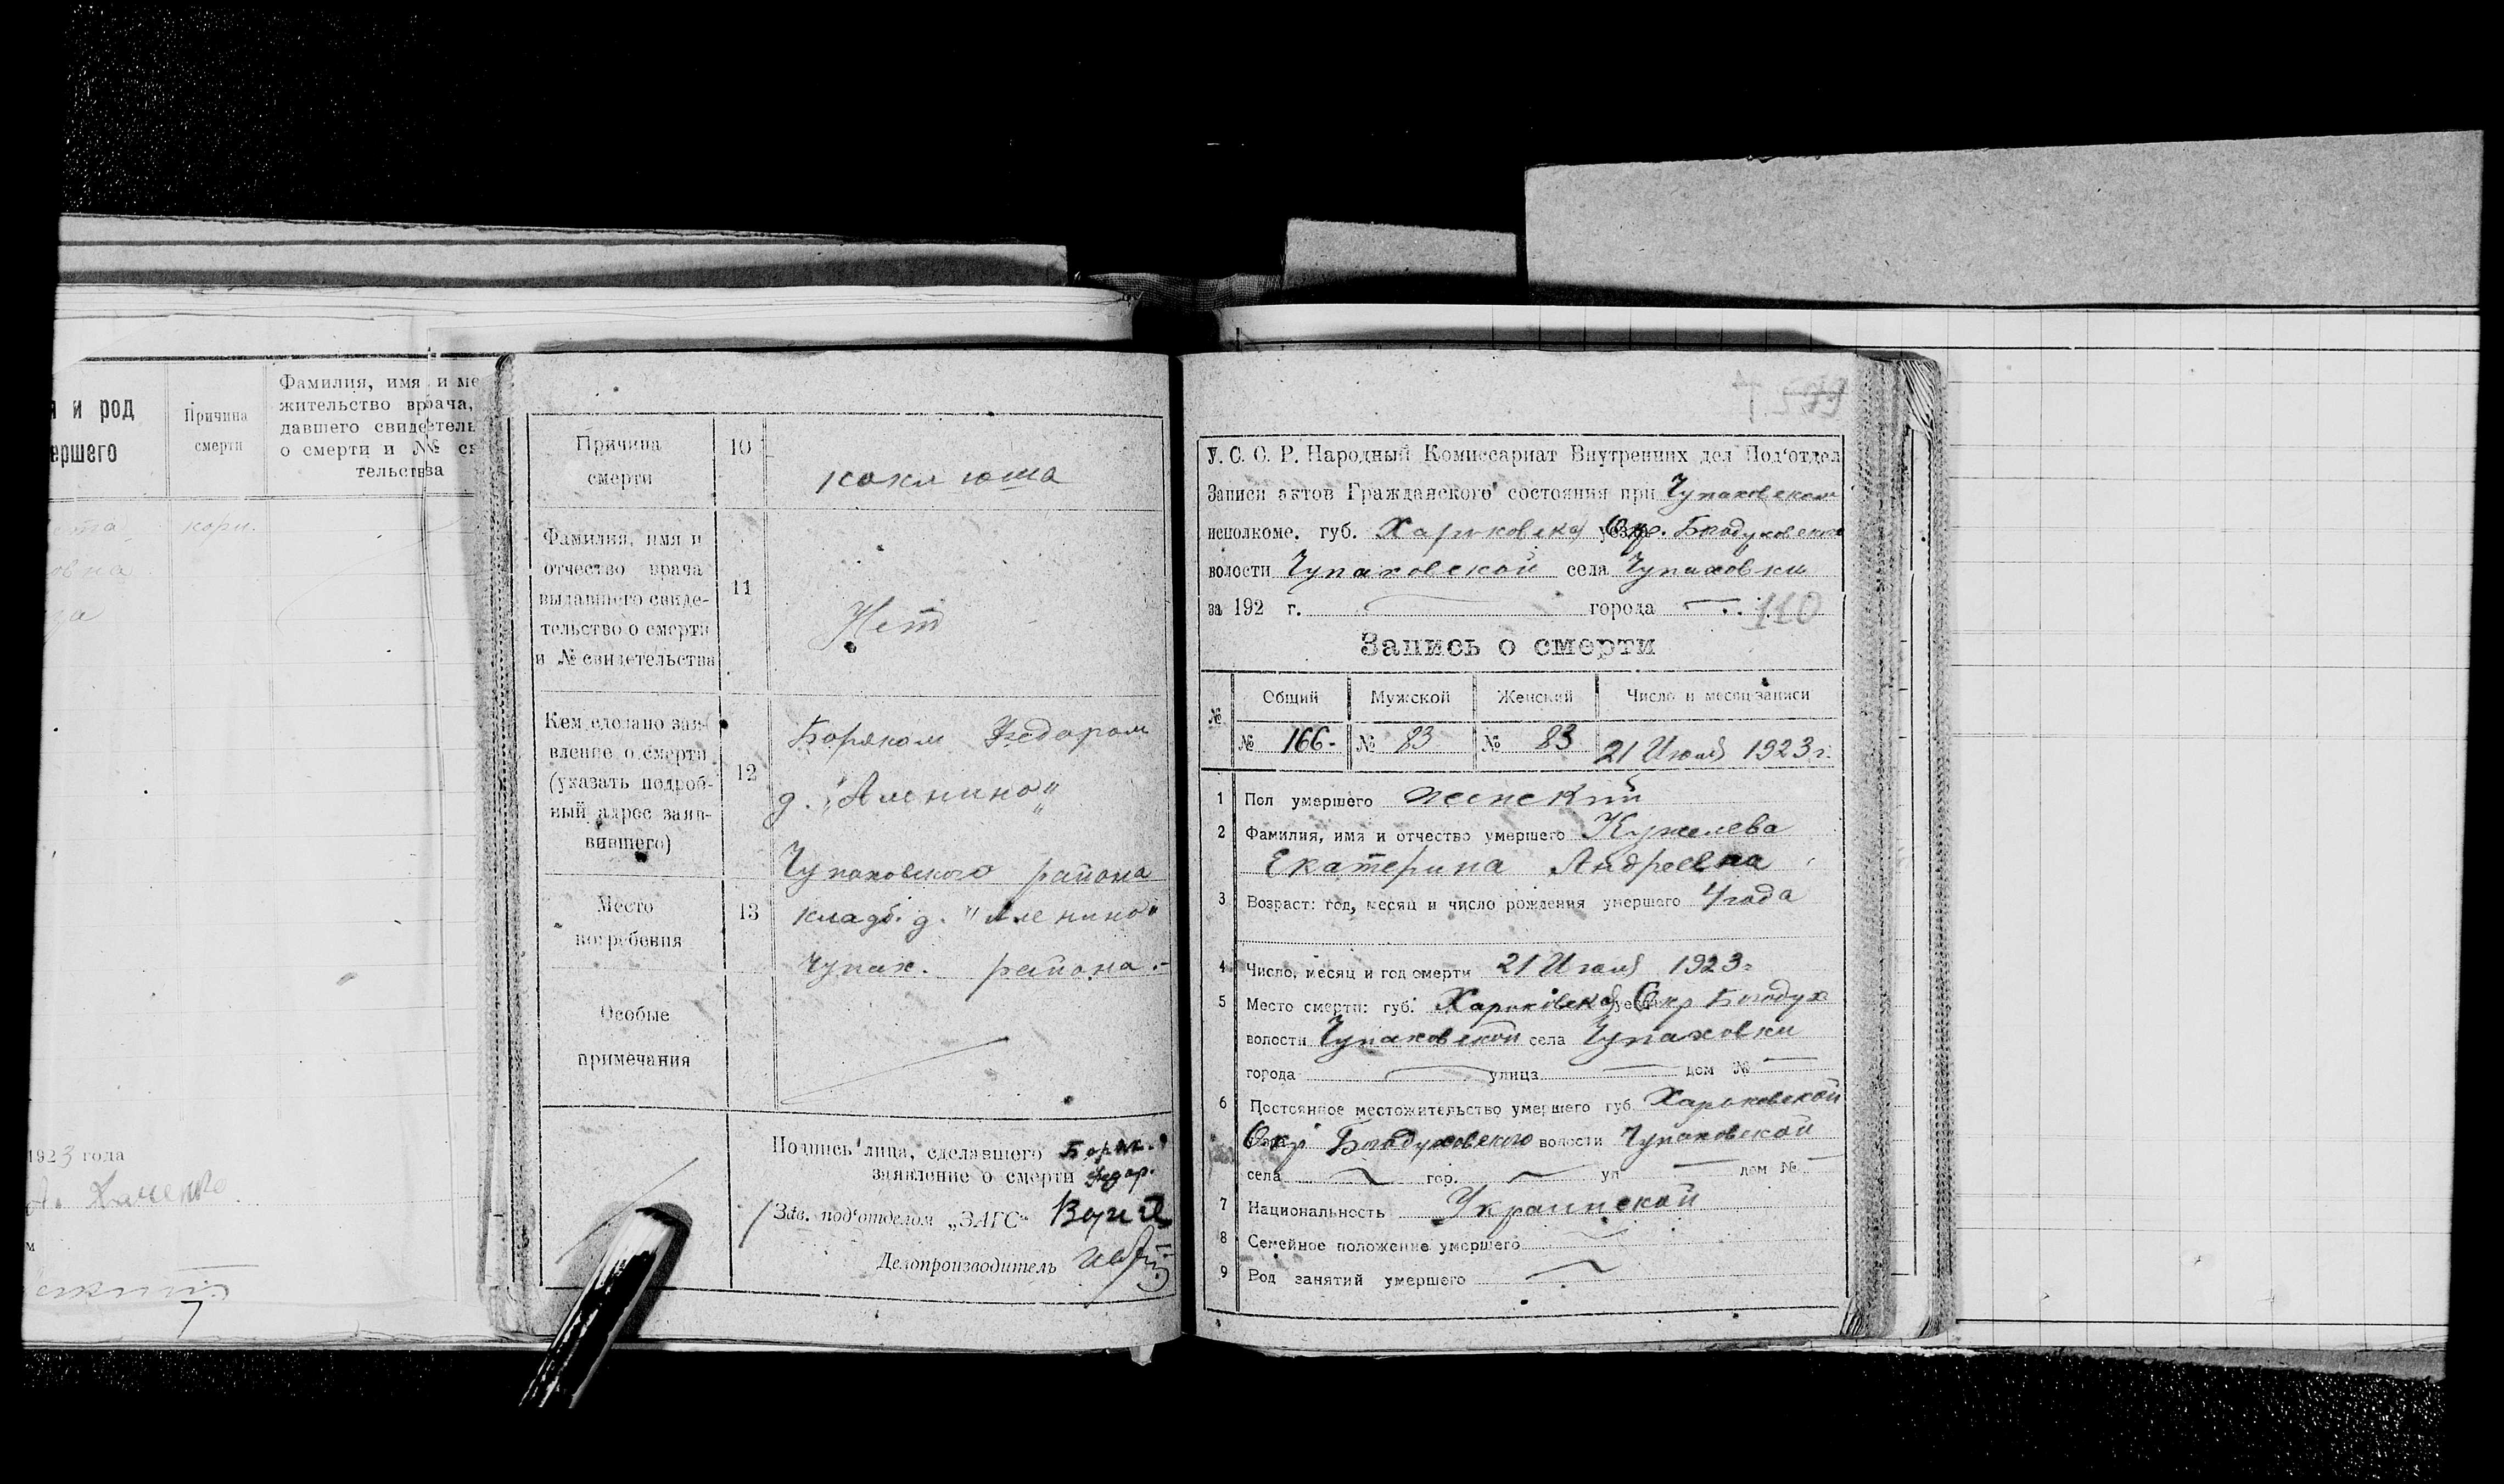 и род
ершего
Причина
смерти
Фамилия, имя и ме
жительство врача,
давшего свидетель
о смерти и № св
тельства
кори.
овна
1923 года
Причина
смерти
10
коклюша
Фамилия, имя и
отчество врача
выдавшего свиде-
тельство о смерти
и № свидетельства
11
Нет
Кем сделано зая-
вление о смерти
(указать подроб-
ный адрес заяв-
вившего)
12
Боряком Федором
д. „Аленино"
Чупаховского района
Место
погребения
13
кладб. д. "Аленино"
Чупах. района.-
Особые
примечания
Подпись лица, сделавшего
заявление о смерти
Зав. под'отделом „ЗАГС"
Делопроизводитель
У. С. С. Р. Народный Комиссариат Внутренних дел Под'отдел
Записи актов Гражданского состояния при Чупаховском
исполкоме. губ. Харьковской Окр. Богодуховского
волости Чупаховской села Чупаховки
за 192 г. города 110
Запись о смерти
№ Общий Мужской Женский Число и месяц записи
№ 166- № 83 № 83 21 Июля 1923 г.
1 Пол умершего женский
2 Фамилия, имя и отчество умершего Кужелева
Екатерина Андреевна
3 Возраст: год, месяц и число рождения умершего 4 года
4 Число, месяц и год смерти 21 Июля 1923 г.
5 Место смерти: губ. Харьковской Окр Богодух
волости Чупаховской села Чупаховки
города улица дом №
6 Постоянное местожительство умершего губ. Харьковской
Окр Богодуховского волости Чупаховской
села гор. ул дом №
7 Национальность Украинской
8 Семейное положение умершего
9 Род занятий умершего